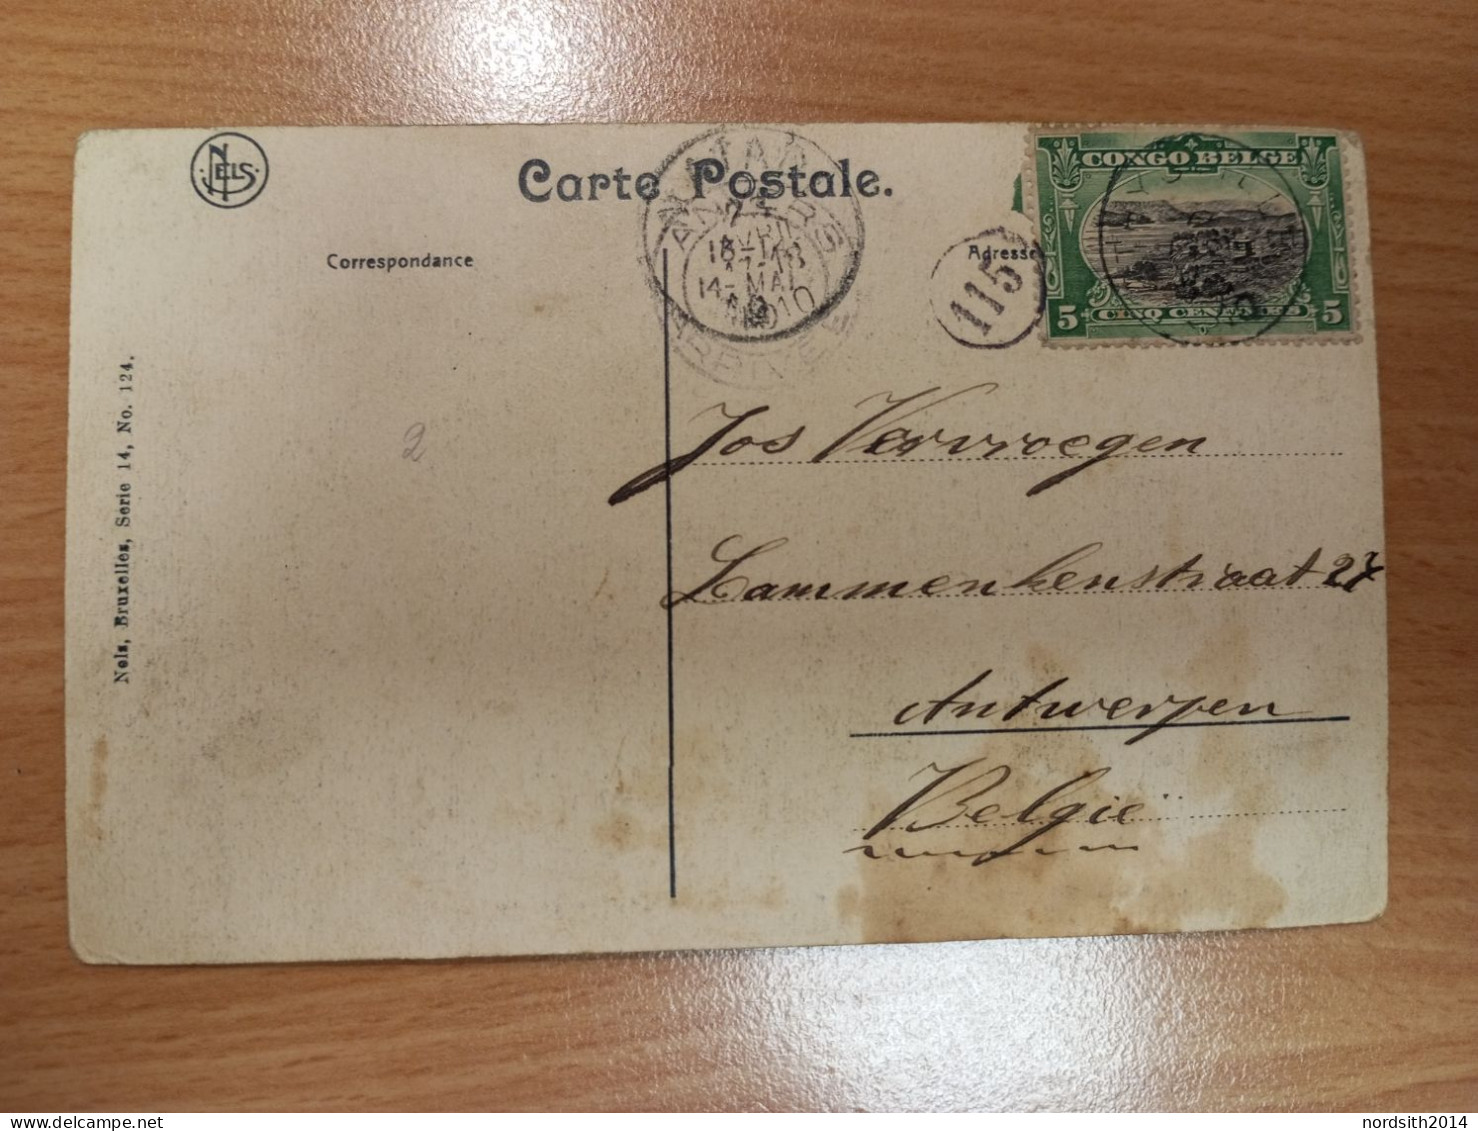 NELS
Carte Postale.
Correspondance
Adresse
CONGO BELGE
5 CINQ CENTIMES 5
MATADI
ANVERS
AVRIL
14-MAI
1910
ARRIVEE
115
2
Jos Vervroegen
Lammenkenstraat 27
Antwerpen
België
Nels, Bruxelles, Serie 14, No. 124.
nordsith2014